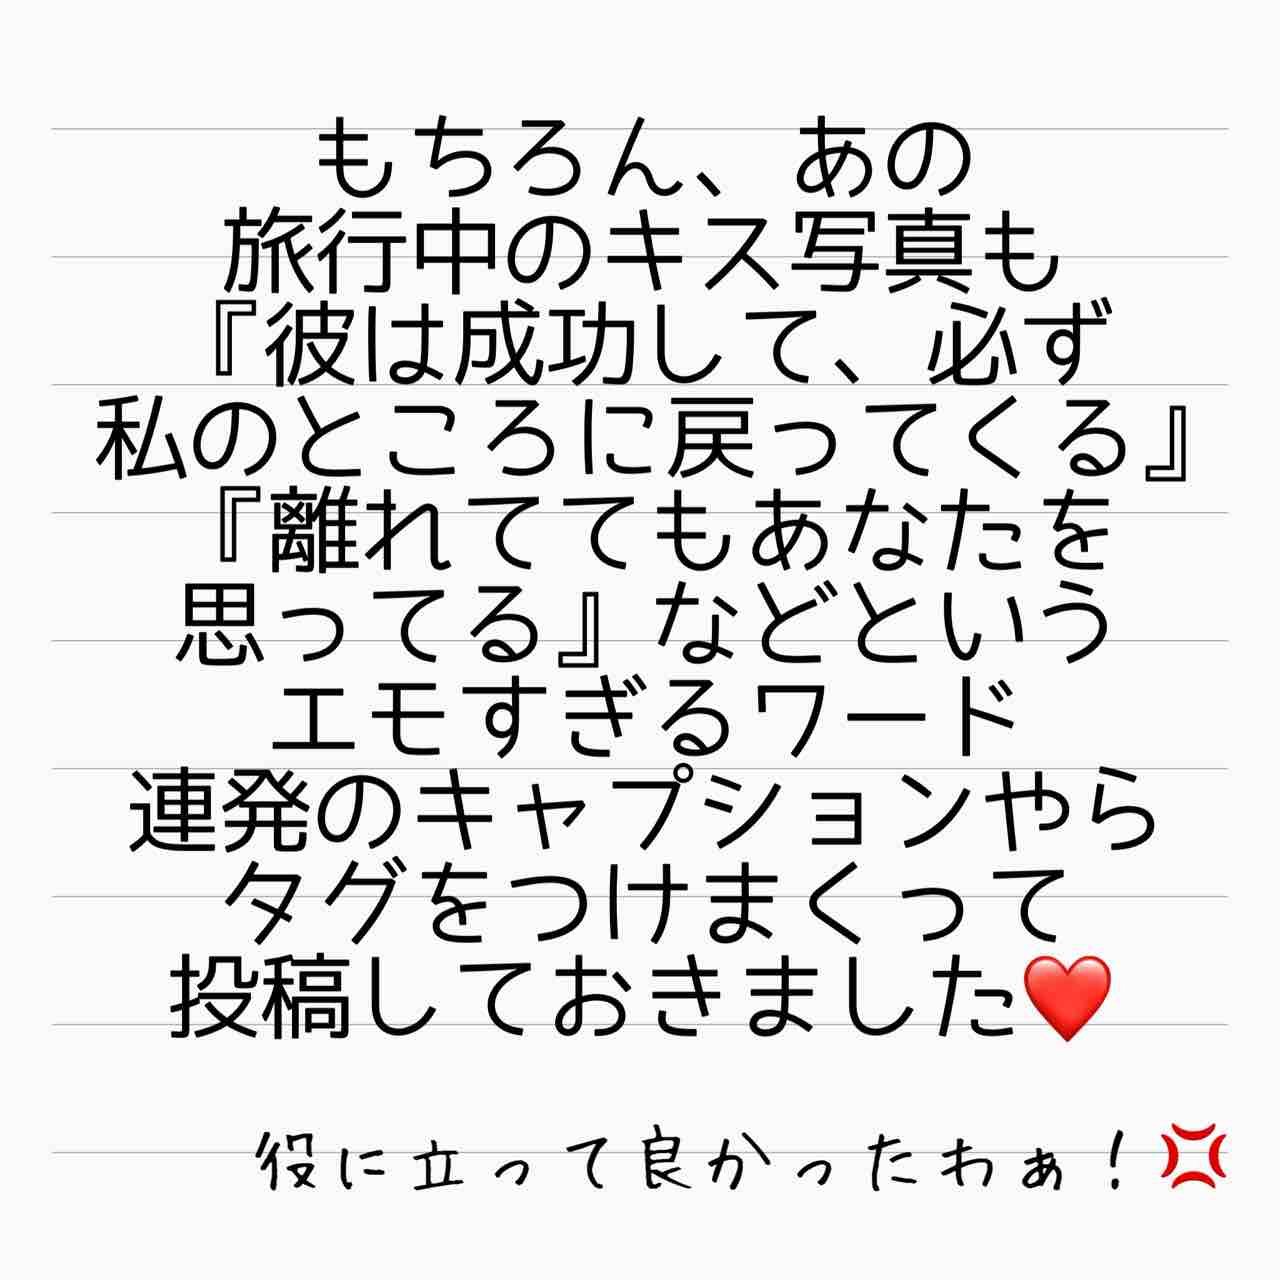 もちろん、あの
旅行中のキス写真も
『彼は成功して、必ず
私のところに戻ってくる』
『離れててもあなたを
思ってる』などという
エモすぎるワード
連発のキャプションやら
タグをつけまくって
投稿しておきました❤️
役に立って良かったわぁ！💢